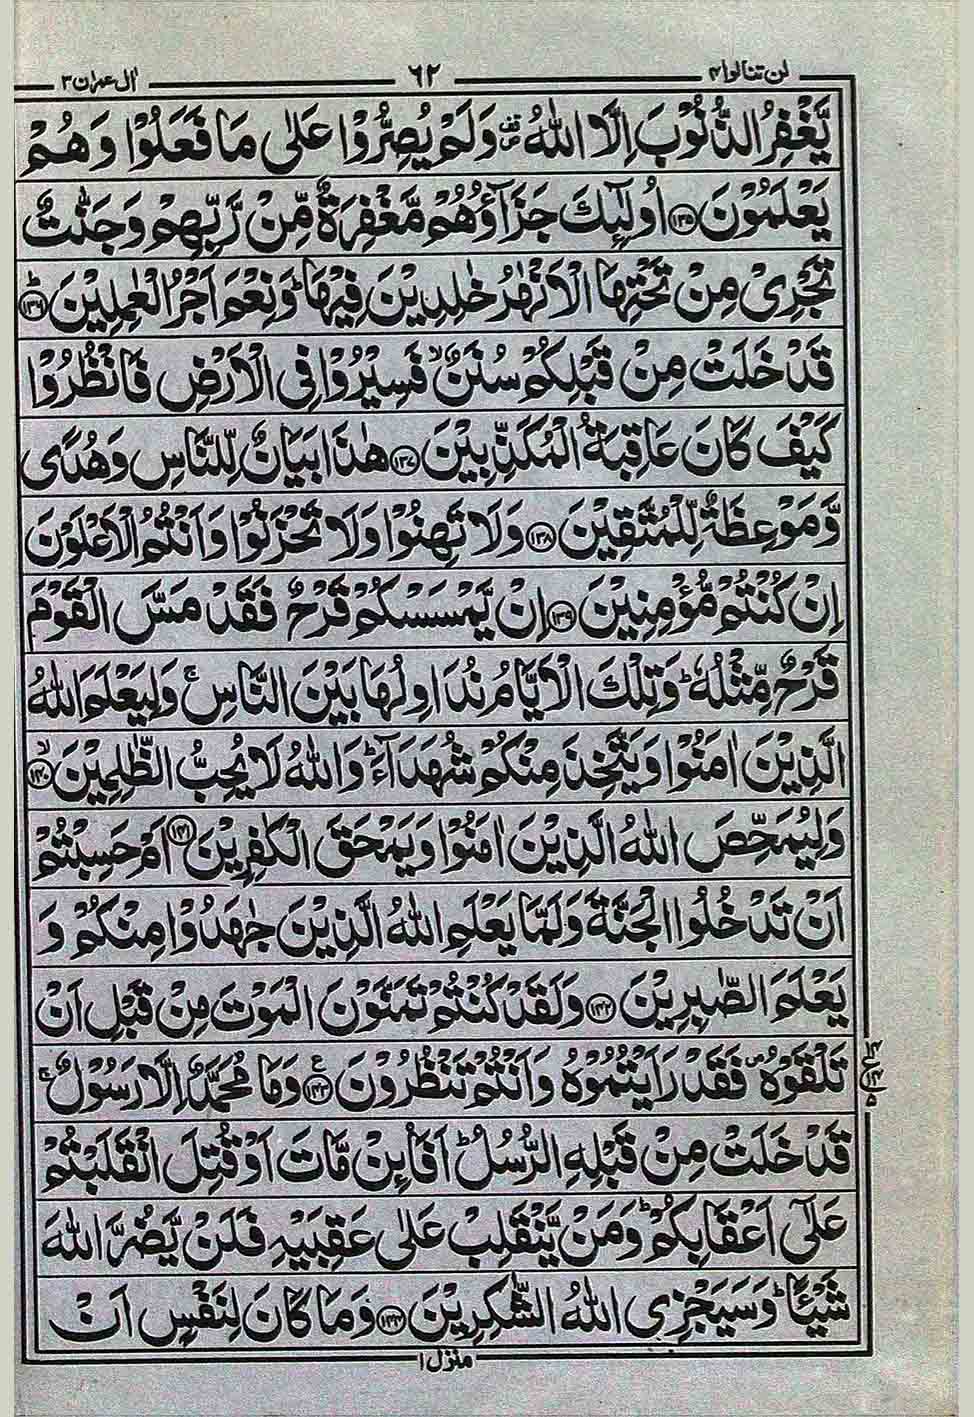 لن تنالوا ۴ ٦٢ اٰل عمرٰن ۳
يَّغْفِرُ الذُّنُوْبَ اِلَّا اللّٰهُ ۪۫ وَلَمْ يُصِرُّوْا عَلٰى مَا فَعَلُوْا وَهُمْ
يَعْلَمُوْنَ ﴿۱۳۵﴾ اُولٰٓئِكَ جَزَآؤُهُمْ مَّغْفِرَةٌ مِّنْ رَّبِّهِمْ وَجَنّٰتٌ
تَجْرِىْ مِنْ تَحْتِهَا الْاَنْهٰرُ خٰلِدِيْنَ فِيْهَا ؕ وَنِعْمَ اَجْرُ الْعٰمِلِيْنَ ؕ ﴿۱۳۶﴾
قَدْ خَلَتْ مِنْ قَبْلِكُمْ سُنَنٌ ۙ فَسِيْرُوْا فِى الْاَرْضِ فَانْظُرُوْا
كَيْفَ كَانَ عَاقِبَةُ الْمُكَذِّبِيْنَ ﴿۱۳۷﴾ هٰذَا بَيَانٌ لِّلنَّاسِ وَهُدًى
وَّمَوْعِظَةٌ لِّلْمُتَّقِيْنَ ﴿۱۳۸﴾ وَلَا تَهِنُوْا وَلَا تَحْزَنُوْا وَاَنْتُمُ الْاَعْلَوْنَ
اِنْ كُنْتُمْ مُّؤْمِنِيْنَ ﴿۱۳۹﴾ اِنْ يَّمْسَسْكُمْ قَرْحٌ فَقَدْ مَسَّ الْقَوْمَ
قَرْحٌ مِّثْلُهٗ ؕ وَتِلْكَ الْاَيَّامُ نُدَاوِلُهَا بَيْنَ النَّاسِ ۚ وَلِيَعْلَمَ اللّٰهُ
الَّذِيْنَ اٰمَنُوْا وَيَتَّخِذَ مِنْكُمْ شُهَدَآءَ ؕ وَاللّٰهُ لَا يُحِبُّ الظّٰلِمِيْنَ ۙ ﴿۱۴۰﴾
وَلِيُمَحِّصَ اللّٰهُ الَّذِيْنَ اٰمَنُوْا وَيَمْحَقَ الْكٰفِرِيْنَ ﴿۱۴۱﴾ اَمْ حَسِبْتُمْ
اَنْ تَدْخُلُوا الْجَنَّةَ وَلَمَّا يَعْلَمِ اللّٰهُ الَّذِيْنَ جٰهَدُوْا مِنْكُمْ وَ
يَعْلَمَ الصّٰبِرِيْنَ ﴿۱۴۲﴾ وَلَقَدْ كُنْتُمْ تَمَنَّوْنَ الْمَوْتَ مِنْ قَبْلِ اَنْ
تَلْقَوْهُ ۪ فَقَدْ رَاَيْتُمُوْهُ وَاَنْتُمْ تَنْظُرُوْنَ ﴿۱۴۳﴾ ع وَمَا مُحَمَّدٌ اِلَّا رَسُوْلٌ ۚ
قَدْ خَلَتْ مِنْ قَبْلِهِ الرُّسُلُ ؕ اَفَا۟ئِنْ مَّاتَ اَوْ قُتِلَ انْقَلَبْتُمْ
عَلٰٓى اَعْقَابِكُمْ ؕ وَمَنْ يَّنْقَلِبْ عَلٰى عَقِبَيْهِ فَلَنْ يَّضُرَّ اللّٰهَ
شَيْئًا ؕ وَسَيَجْزِى اللّٰهُ الشّٰكِرِيْنَ ﴿۱۴۴﴾ وَمَا كَانَ لِنَفْسٍ اَنْ
منزل ۱